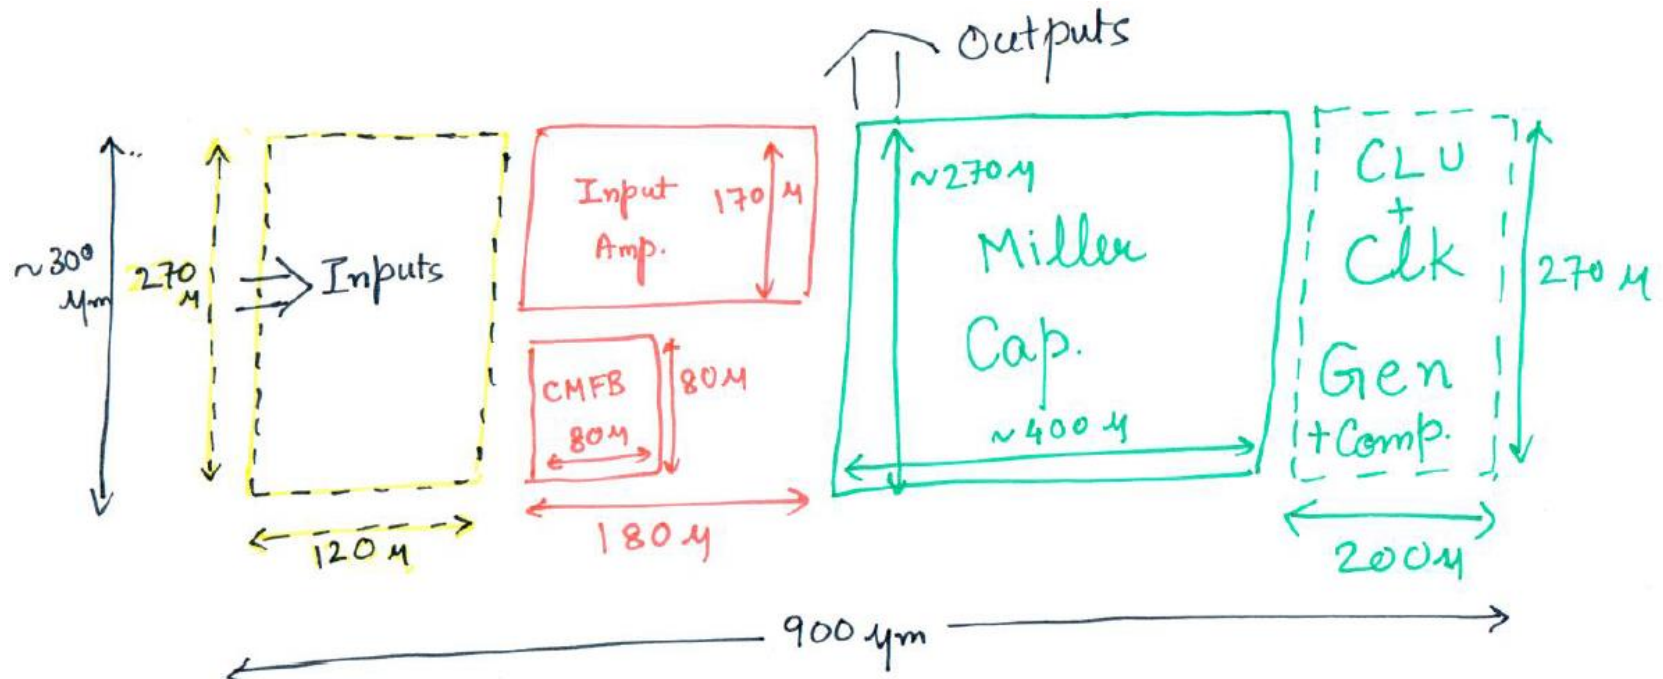 Outputs
~300
μm
270
μ
Inputs
120 μ
Input
Amp.
170 μ
CMFB
80μ
80μ
180 μ
~270 μ
Miller
Cap.
~400 μ
CLU
+
Clk
Gen
+Comp.
270 μ
200μ
900 μm